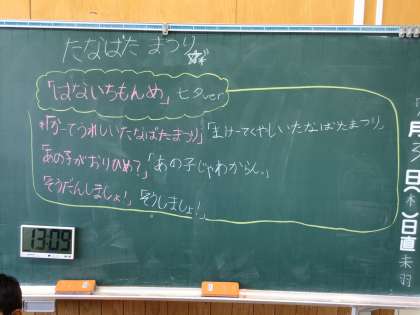 たなばた まつり
「はないちもんめ」七夕ver
「かーてうれしいたなばたまつり」「まけーてくやしいたなばたまつり」
「あの子がおりひめ?」「あの子じゃわからん。」
「そうだんしましょ!」「そうしましょ!」
13:09
月
日
木
日直
未羽